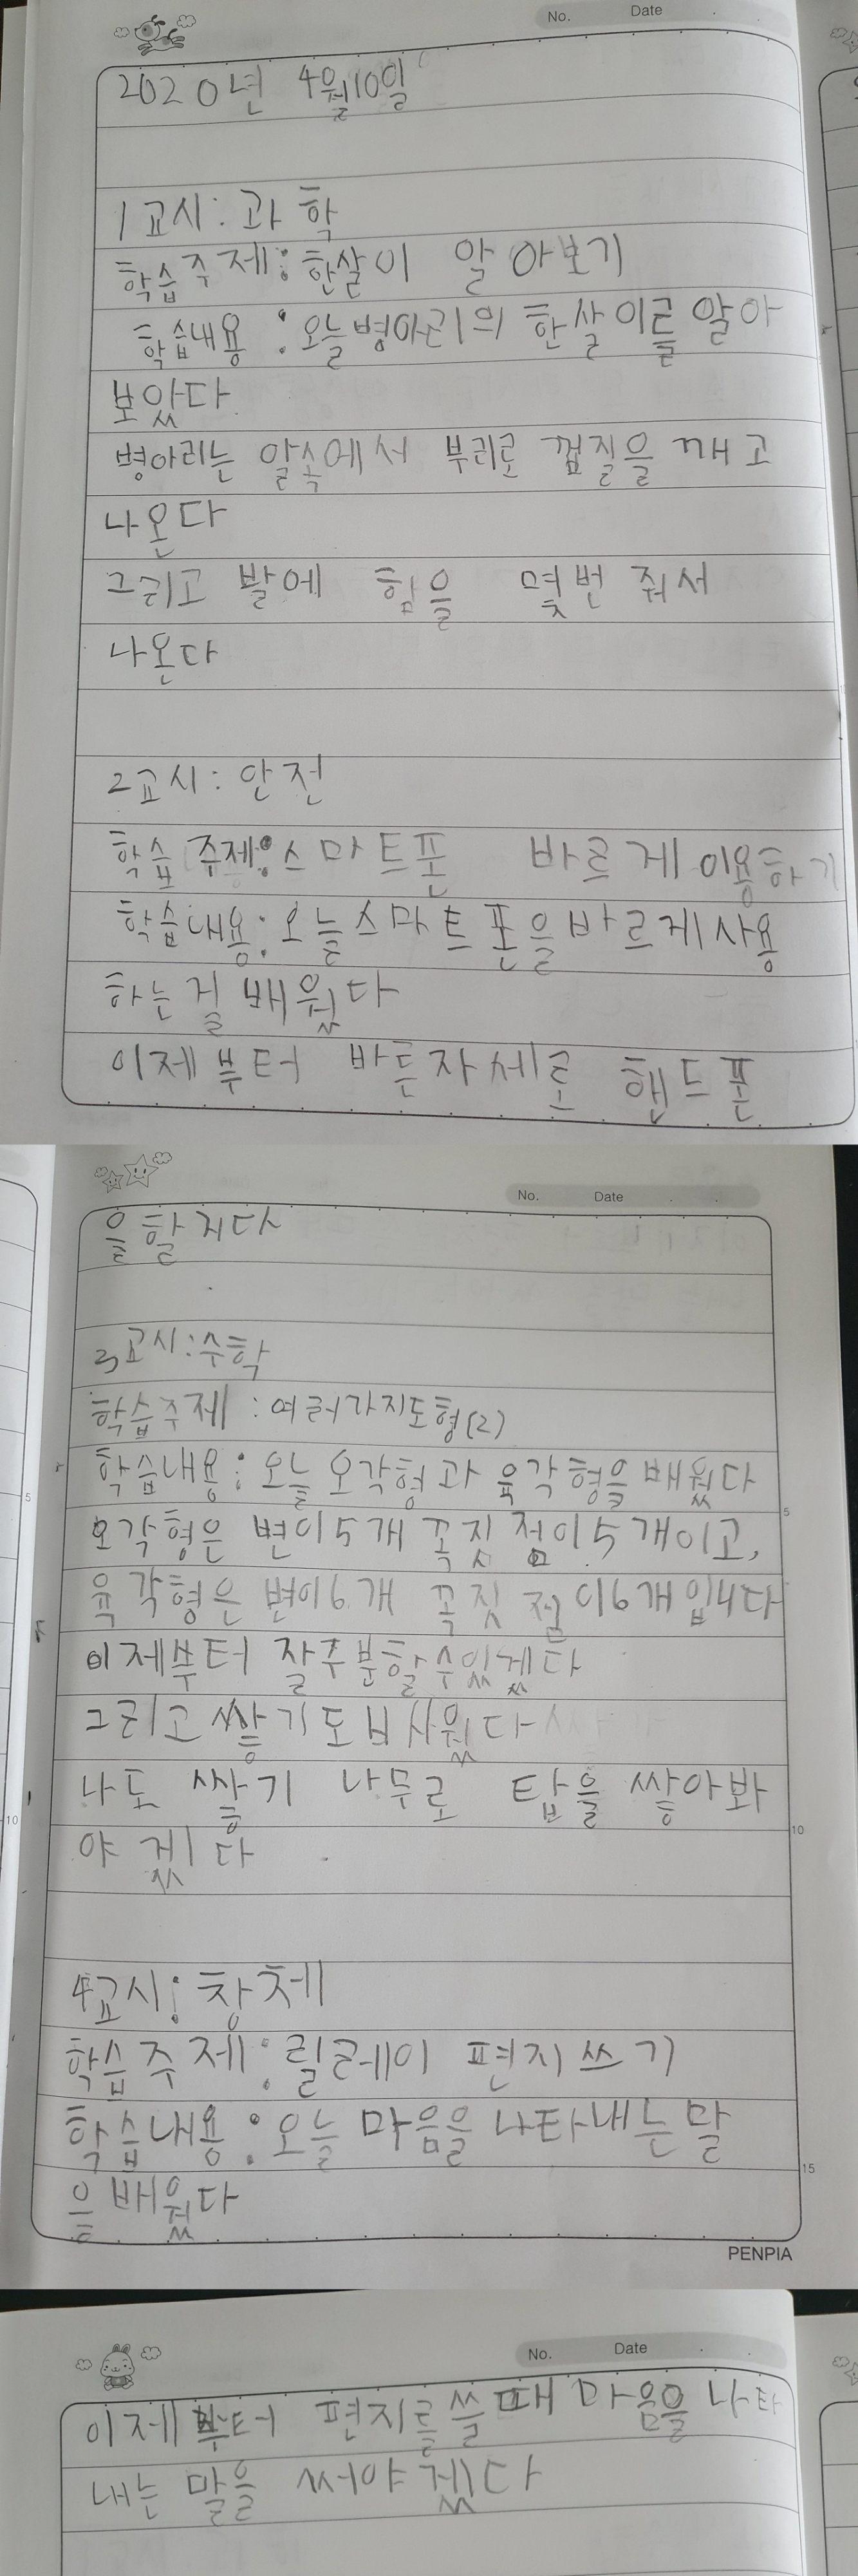 No. Date
2020년 4월10일
1교시: 과학
학습주제: 한살이 알아보기
학습내용 : 오늘병아리의 한살이를 알아
보았다
병아리는 알속에서 부리로 껍질을 깨고
나온다
그리고 발에 힘을 몇번 줘서
나온다
2교시: 안전
학습 주제: 스마트폰 바르게 이용하기
학습내용: 오늘스마트폰을바르게사용
하는걸배웠다
이제부터 바른자세로 핸드폰
No. Date
을할지다
3교시:수학
학습주제 : 여러가지도형(2)
학습내용: 오늘 오각형과 육각형을 배웠다
5
오각형은 변이5개 꼭짓점이5개이고,
육각형은 변이6개 꼭짓점이6개입니다
이제부터 잘주분할수있겠다
그리고 쌓기도 배웠다
나도 쌓기 나무로 탑을 쌓아봐
10
야겠다
4교시: 창체
학습주제: 릴레이 편지쓰기
학습내용: 오늘 마음을 나타내는말
15
을배웠다
PENPIA
No. Date
이제부터 편지를쓸때 마음을 나타
내는 말을 써야겠다